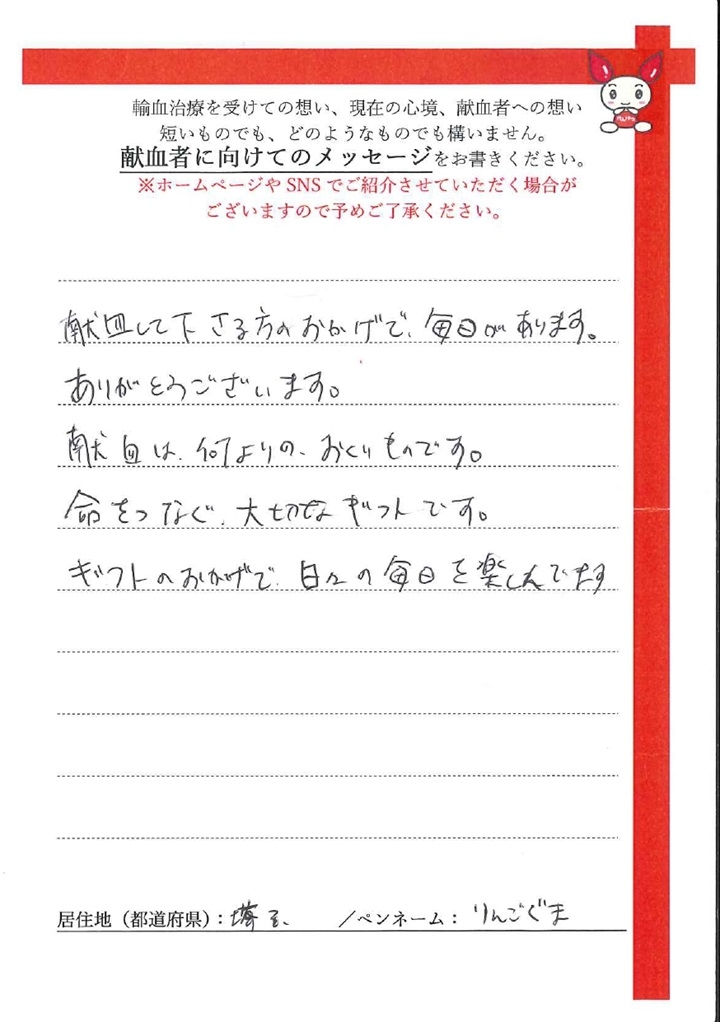 輸血治療を受けての想い、現在の心境、献血者への想い
短いものでも、どのようなものでも構いません。
献血者に向けてのメッセージをお書きください。
※ホームページやSNSでご紹介させていただく場合が
ございますので予めご了承ください。
献血して下さる方のおかげで、毎日があります。
ありがとうございます。
献血は、何よりの、おくりものです。
命をつなぐ、大切なギフトです。
ギフトのおかげで、日々の毎日を楽しんでます
居住地（都道府県）：埼玉、 ／ペンネーム：りんごぐま